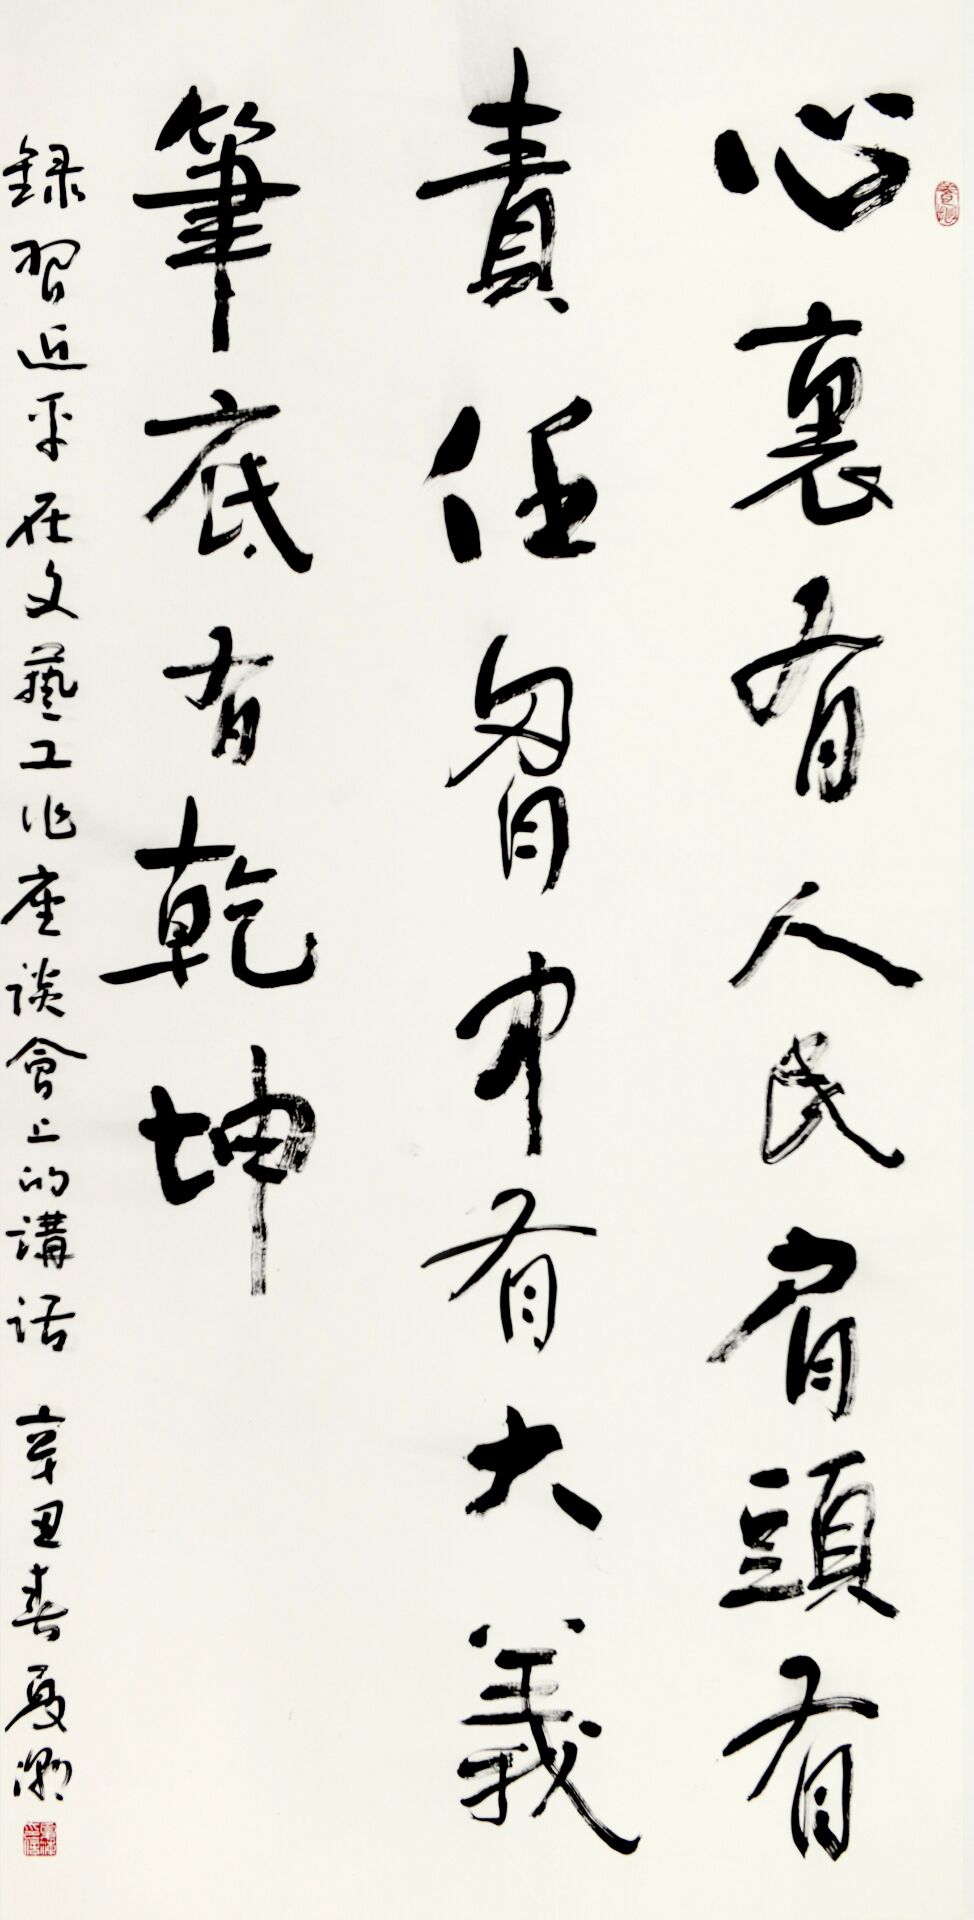 心裏有人民肩頭有
責任胷中有大義
筆底有乾坤
録習近平在文藝工作座談會上的講話 辛丑春夏潮